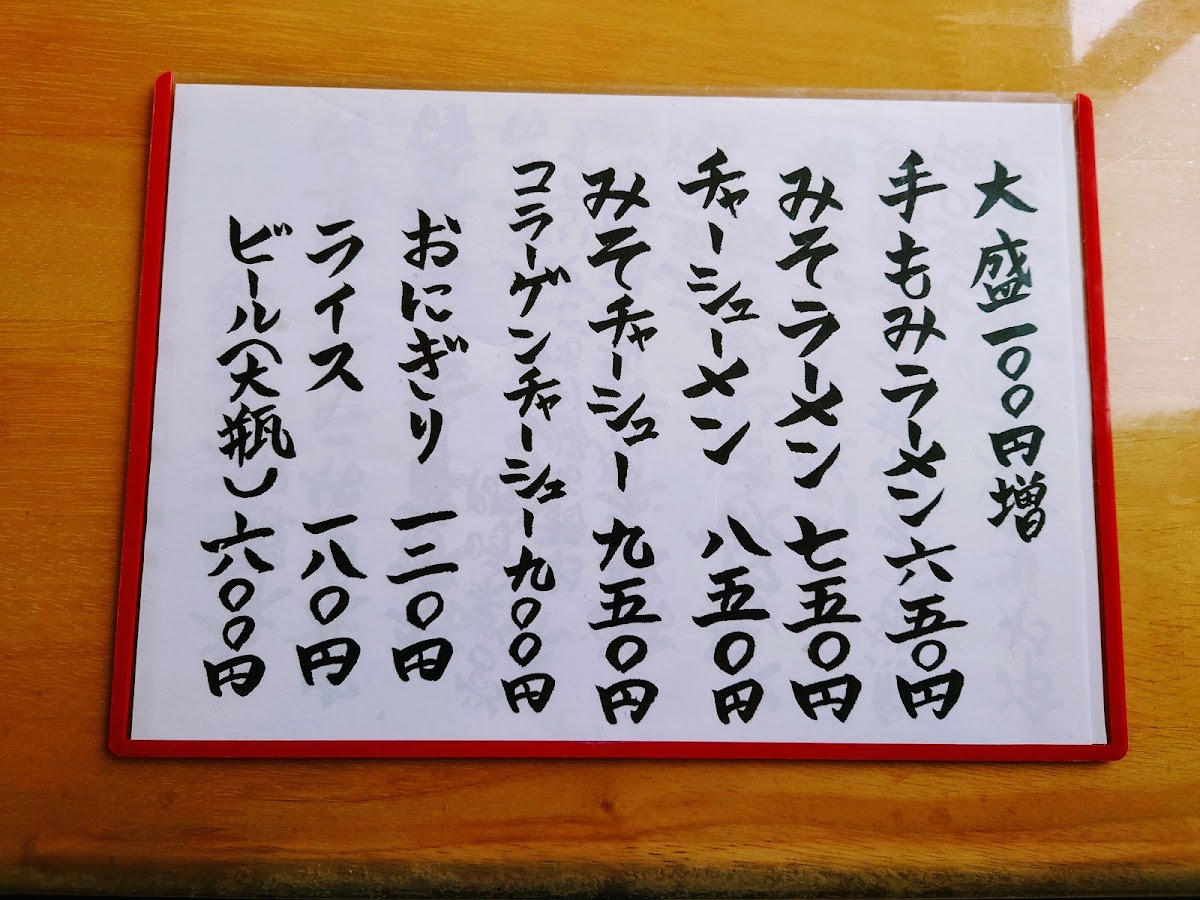 大盛一〇〇円増
手もみラーメン六五〇円
みそラーメン七五〇円
チャーシューメン八五〇円
みそチャーシュー九五〇円
コラーゲンチャーシュー九〇〇円
おにぎり一二〇円
ライス一八〇円
ビール(大瓶)六〇〇円